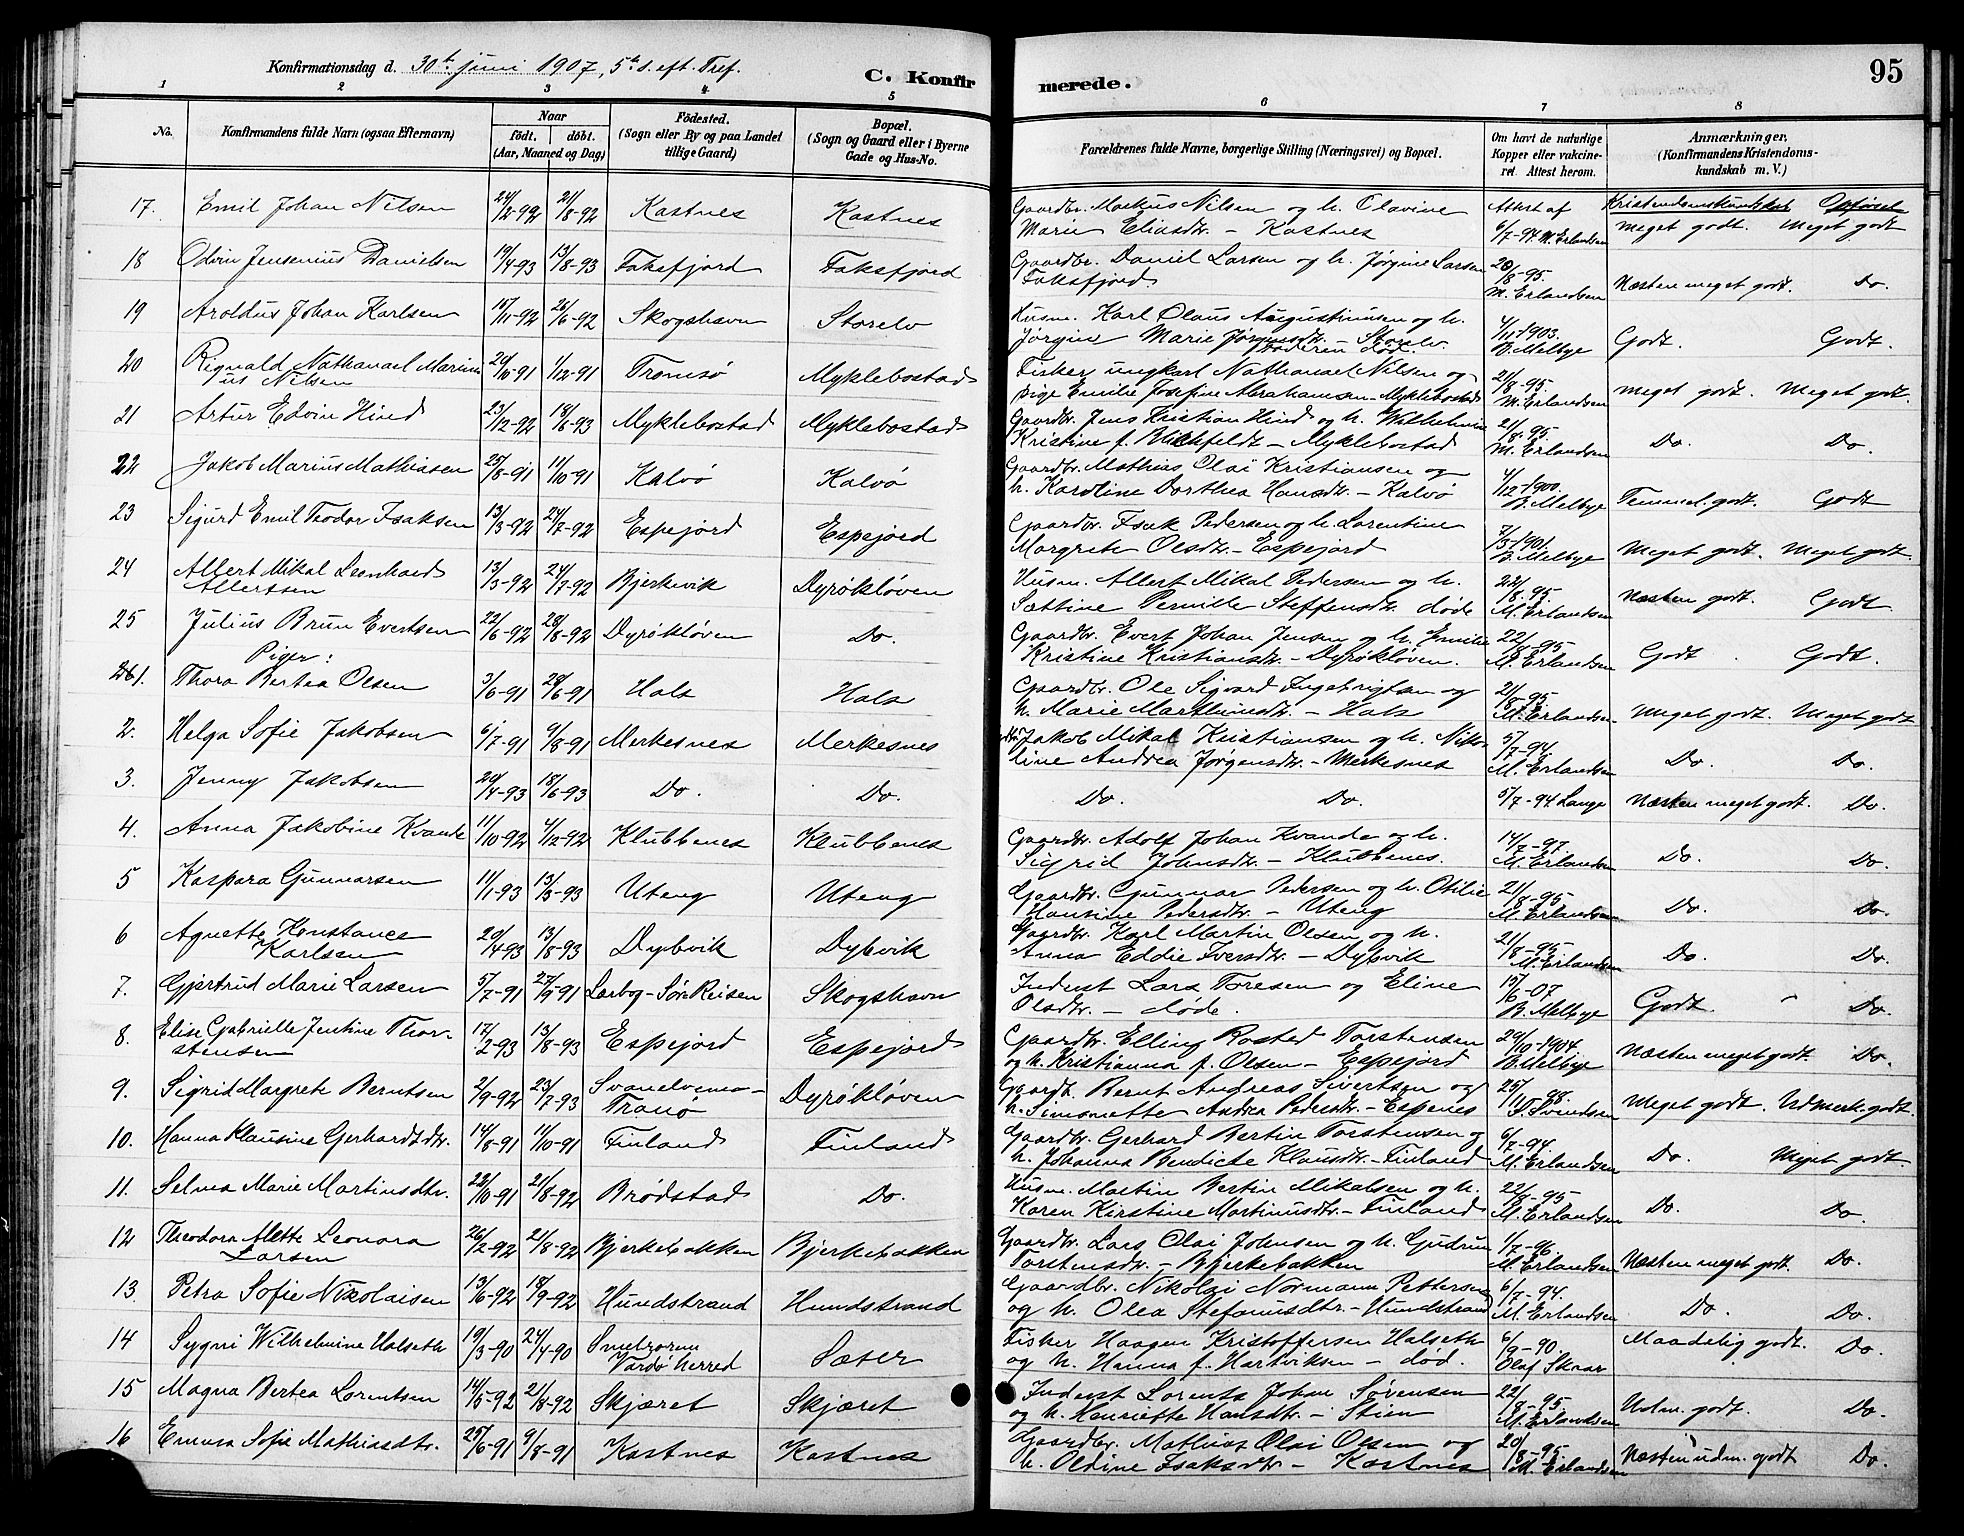 95
Konfirmationsdag d. 30te juni 1907, 5te s. eft. Tref.
C. Konfirmerede.
1 2 3 4 5 6 7 8
No.
Konfirmandens fulde Navn (ogsaa Efternavn)
Naar
födt. döbt.
(Aar, Maaned og Dag)
Födested.
(Sogn eller By og paa Landet
tillige Gaard)
Bopæl.
(Sogn og Gaard eller i Byerne
Gade og Hus-No.
Forældrenes fulde Navne, borgerlige Stilling (Næringsvei) og Bopæl.
Om havt de naturlige
Kopper eller vakcine-
ret Attest herom.
Anmærkninger,
(Konfirmandens Kristendoms-
kundskab m. V.)
Kristendomskundskab Opførsel
17. Emil Johan Nilsen 24/2-92 21/8-92 Kastnes Kastnes Gaardbr. Markus Nilsen og h. Olavine Attest af
Marie Eliasdtr. - Kastnes 6/7-94. M. Erlandsen meget godt. Meget godt
18 Odin Jensenius Danielsen 19/4-93 13/8-93 Faksfjord Faksfjord Gaardbr. Daniel Larsen og h. Jørgine Larsen 20/8-95.
Faksfjord. M. Erlandsen Næsten meget godt. Do.
19 Aroldus Johan Karlsen 26/6-92 Skogshavn Storelv Husm. Karl Olaus Augustinusen og h. 4/11-1903.
Jørgine Marie Jørginsdtr. Storelv. B. Melbye Godt. Godt.
Moderen død.
20 Rignald Nathanael Marini- 1/12-91 Tromsø Myklebostad Fisker ungkarl Nathanael Nilsen og 21/8-95.
us Nilsen pige Emilie Josefine Abrahamsen Myklebostad M. Erlandsen meget godt. Meget godt.
21 Artur Edvin Hind 23/12-92 18/6-93 Myklebostad Myklebostad Gaardbr. Jens Kristian Hind og h. Wilhelmine 21/8-95.
Kristine f. Blichfeldt - Myklebostad M. Erlandsen Do. Do.
22 Jakob Marius Mathiasen 25/8-91 11/10-91 Kalvø Kalvø Gaardbr. Mathias Olai Kristiansen og 4/12-1900.
h. Karoline Dorthea Hansdtr. - Kalvø B. Melbye Temmel. godt. Godt
23 Sigurd Emil Teodor Isaksen 13/3-92 24/7-92 Espejord Espejord Gaardbr. Isak Pedersen og h. Lorentine 7/3-1901.
Margrete Olsdtr. - Espejord B. Melbye Meget godt. Meget godt
24 Allert Mikal Leonhard 13/3-92 24/7-92 Bjerkvik Dyrøkløven Husm. Allert Mikal Pedersen og h. 22/8-95.
Allertsen Sættine Pernille Steffensdtr. døde M. Erlandsen Næsten godt. Godt.
25 Julius Brun Evertsen 22/6-92 28/8-92 Dyrøkløven Do. Gaardbr. Evert Johan Jensen og h. Emilie 22/8-95
Kristine Kristiansdtr. - Dyrøkløven. M. Erlandsen Godt. Godt.
Piger:
261. Thora Bertea Olsen 3/6-91 28/6-91 Hals Hals Gaardbr. Ole Sigvard Ingebrigtsen og 21/8-95
h. Marie Marthinsdtr. - Hals M. Erlandsen Meget godt. Meget godt
2. Helga Sofie Jakobsen 6/7-91 9/8-91 Merkesnes Merkesnes Jakob Mikal Kristiansen og h. Niko- 5/7-94.
line Andrea Jørgensdtr. - Merkesnes M. Erlandsen Do. Do.
3. Jenny Jakobsen 18/6-93 Do. Do. Do. Do. 5/7-94 Lange Næsten meget godt. Do.
4. Anna Jakobine Kvande 11/10-92 4/12-92 Klubbenes Klubbenes Gaardbr. Adolf Johan Kvande og h. 14/7-97.
Sigrid Johnsdtr. - Klubbenes. M. Erlandsen Do. Do.
5 Kaspara Gunnarsen 11/1-93 Uteng Uteng Gaardbr. Gunnar Pedersen og h. Otilie 21/8-95
Hansine Pedersdtr. - Uteng M. Erlandsen Do. Do.
6 Agnette Konstance 20/4-93 13/8-93 Dybvik Dybvik Gaardbr. Karl Martin Olsen og h. 21/8-95
Karlsen Anna Eddie Iversdtr. - Dybvik M. Erlandsen Do. Do.
7. Gjertrud Marie Larsen 5/7-91 27/9-91 Larbog-Sør Reisen Skogshavn Inderst Lars Toresen og Eline 15/6-07
Olsdtr. - døde. B. Melbye Godt. Do.
8. Elise Gabrielle Jentine Thor- 17/2-93 13/8-93 Espejord Espejord Gaardbr. Elling Rosted Torstensen 29/10-1904.
stensen og h. Kristianna f. Olsen - Espejord B. Melbye Næsten meget godt Do.
9. Sigrid Margrete Berntsen 2/9-92 23/7-93 Svanelvemo- Dyrøkløven Gaardbr. Bernt Andreas Sivertsen og 25/11-98.
Tranø h. Simonette Andrea Pedersdtr. - Espenes Svendsen Meget godt. Udmerk. godt.
10. Hanna Klausine Gerhardtdtr. 14/8-91 11/10-91 Finland Finland Gaardbr. Gerhard Bertin Torstensen og 6/7-94.
h. Johanna Bendicte Klausdtr. - Finland M. Erlandsen Do. Meget godt.
11. Selma Marie Martinsdtr. 21/8-92 Brødstad Do. Husm. Martin Bertin Mikalsen og h. 22/8-95
Karen Kirstine Martinusdtr. - Finland M. Erlandsen Do. Do.
12 Theodora Alette Leonora 26/2-92 21/8-92 Bjerkebakken Bjerkebakken Gaardbr. Lars Olai Johnsen og h. Gudrun 1/7-96
Larsen Torstensdtr. - Bjerkebakken M. Erlandsen Næsten meget godt. Do.
13. Petra Sofie Nikolaisen 13/6-92 18/9-92 Hundstrand Hundstrand Gaardbr. Nikolai Normann Pettersen 6/7-94.
og h. Olea Stefanusdtr. - Hundstrand M. Erlandsen Do. Do.
14 Sygni Wilhelmine Halseth 19/3-90 24/4-90 Vardø herred Sæter Fisker Haagen Kristoffersen Halseth 6/9-90.
og h. Hanna f. Hartviksen - død. Olaf Skaar Maadelig godt. Do.
15 Magna Bertea Lorentsen 14/5-92 21/8-92 Skjæret Skjæret Inderst Lorents Johan Sørensen 22/8-95
og h. Henriette Hansdtr. - Stien M. Erlandsen Udm. godt. Do.
16 Emma Sofie Mathiasdtr. 25/6-91 9/8-91 Kastnes Kastnes Gaardbr. Mathias Olai Olsen og 20/8-95
h. Oldine Isaksdtr. - Kastnes M. Erlandsen Næsten udm. godt Do.